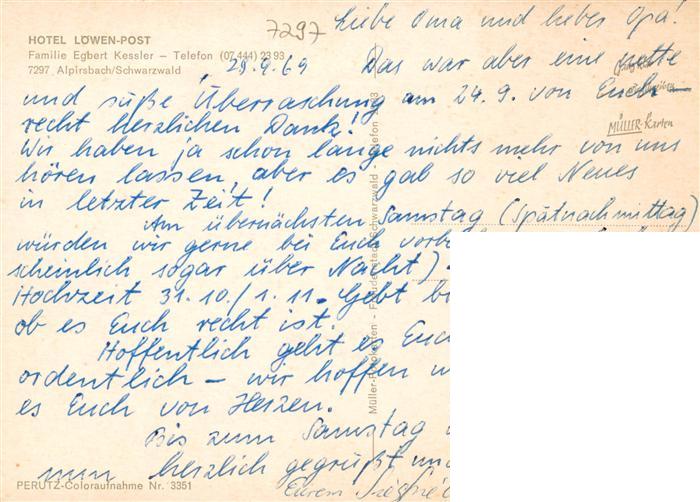 7297
Liebe Oma und lieber Opa!
HOTEL LÖWEN-POST
Familie Egbert Kessler – Telefon (07 444) 23 93
7297 Alpirsbach/Schwarzwald
29.9.69 Das war aber eine nette
und süße Überraschung am 24.9. von Euch –
recht herzlichen Dank!
MÜLLER-Karten
Wir haben ja schon lange nichts mehr von uns
hören lassen, aber es gab so viel Neues
in letzter Zeit!
Am übernächsten Samstag (Spätnachmittag)
würden wir gerne bei Euch vorb
scheinlich sogar über Nacht).
Hochzeit 31.10./1.11. Gebt b
ob es Euch recht ist.
Hoffentlich geht es Euc
ordentlich – wir hoffen w
es Euch von Herzen.
Bis zum Samstag
nun herzlich gegrüßt und
Eurem
PERUTZ-Coloraufnahme Nr. 3351
Müller-Fotokarten - Freudenstadt/Schwarzwald Telefon